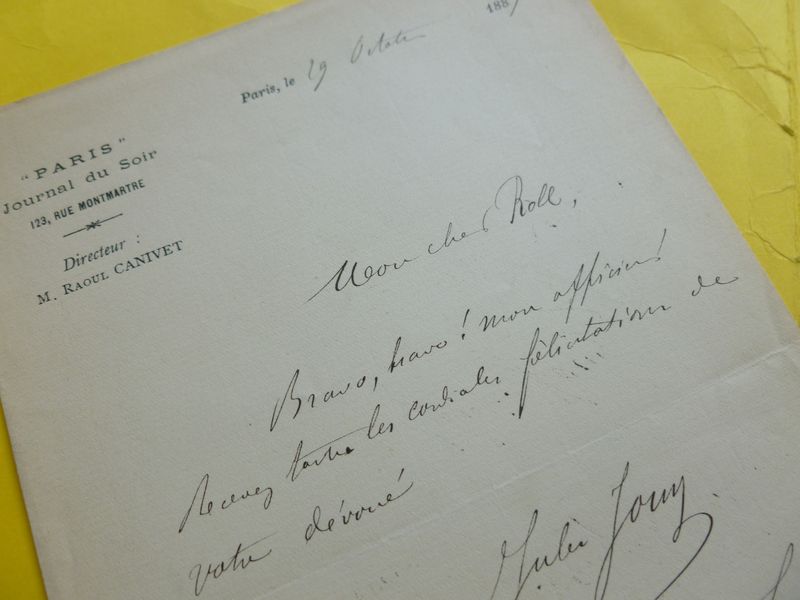 Paris, le 29 Octobre 188
"PARIS"
Journal du Soir
123, RUE MONTMARTRE
Directeur :
M. RAOUL CANIVET
Mon cher Roll,
Bravo, bravo! mon officier!
Recevez toutes les cordiales félicitations de
votre dévoué
Jules Jouy